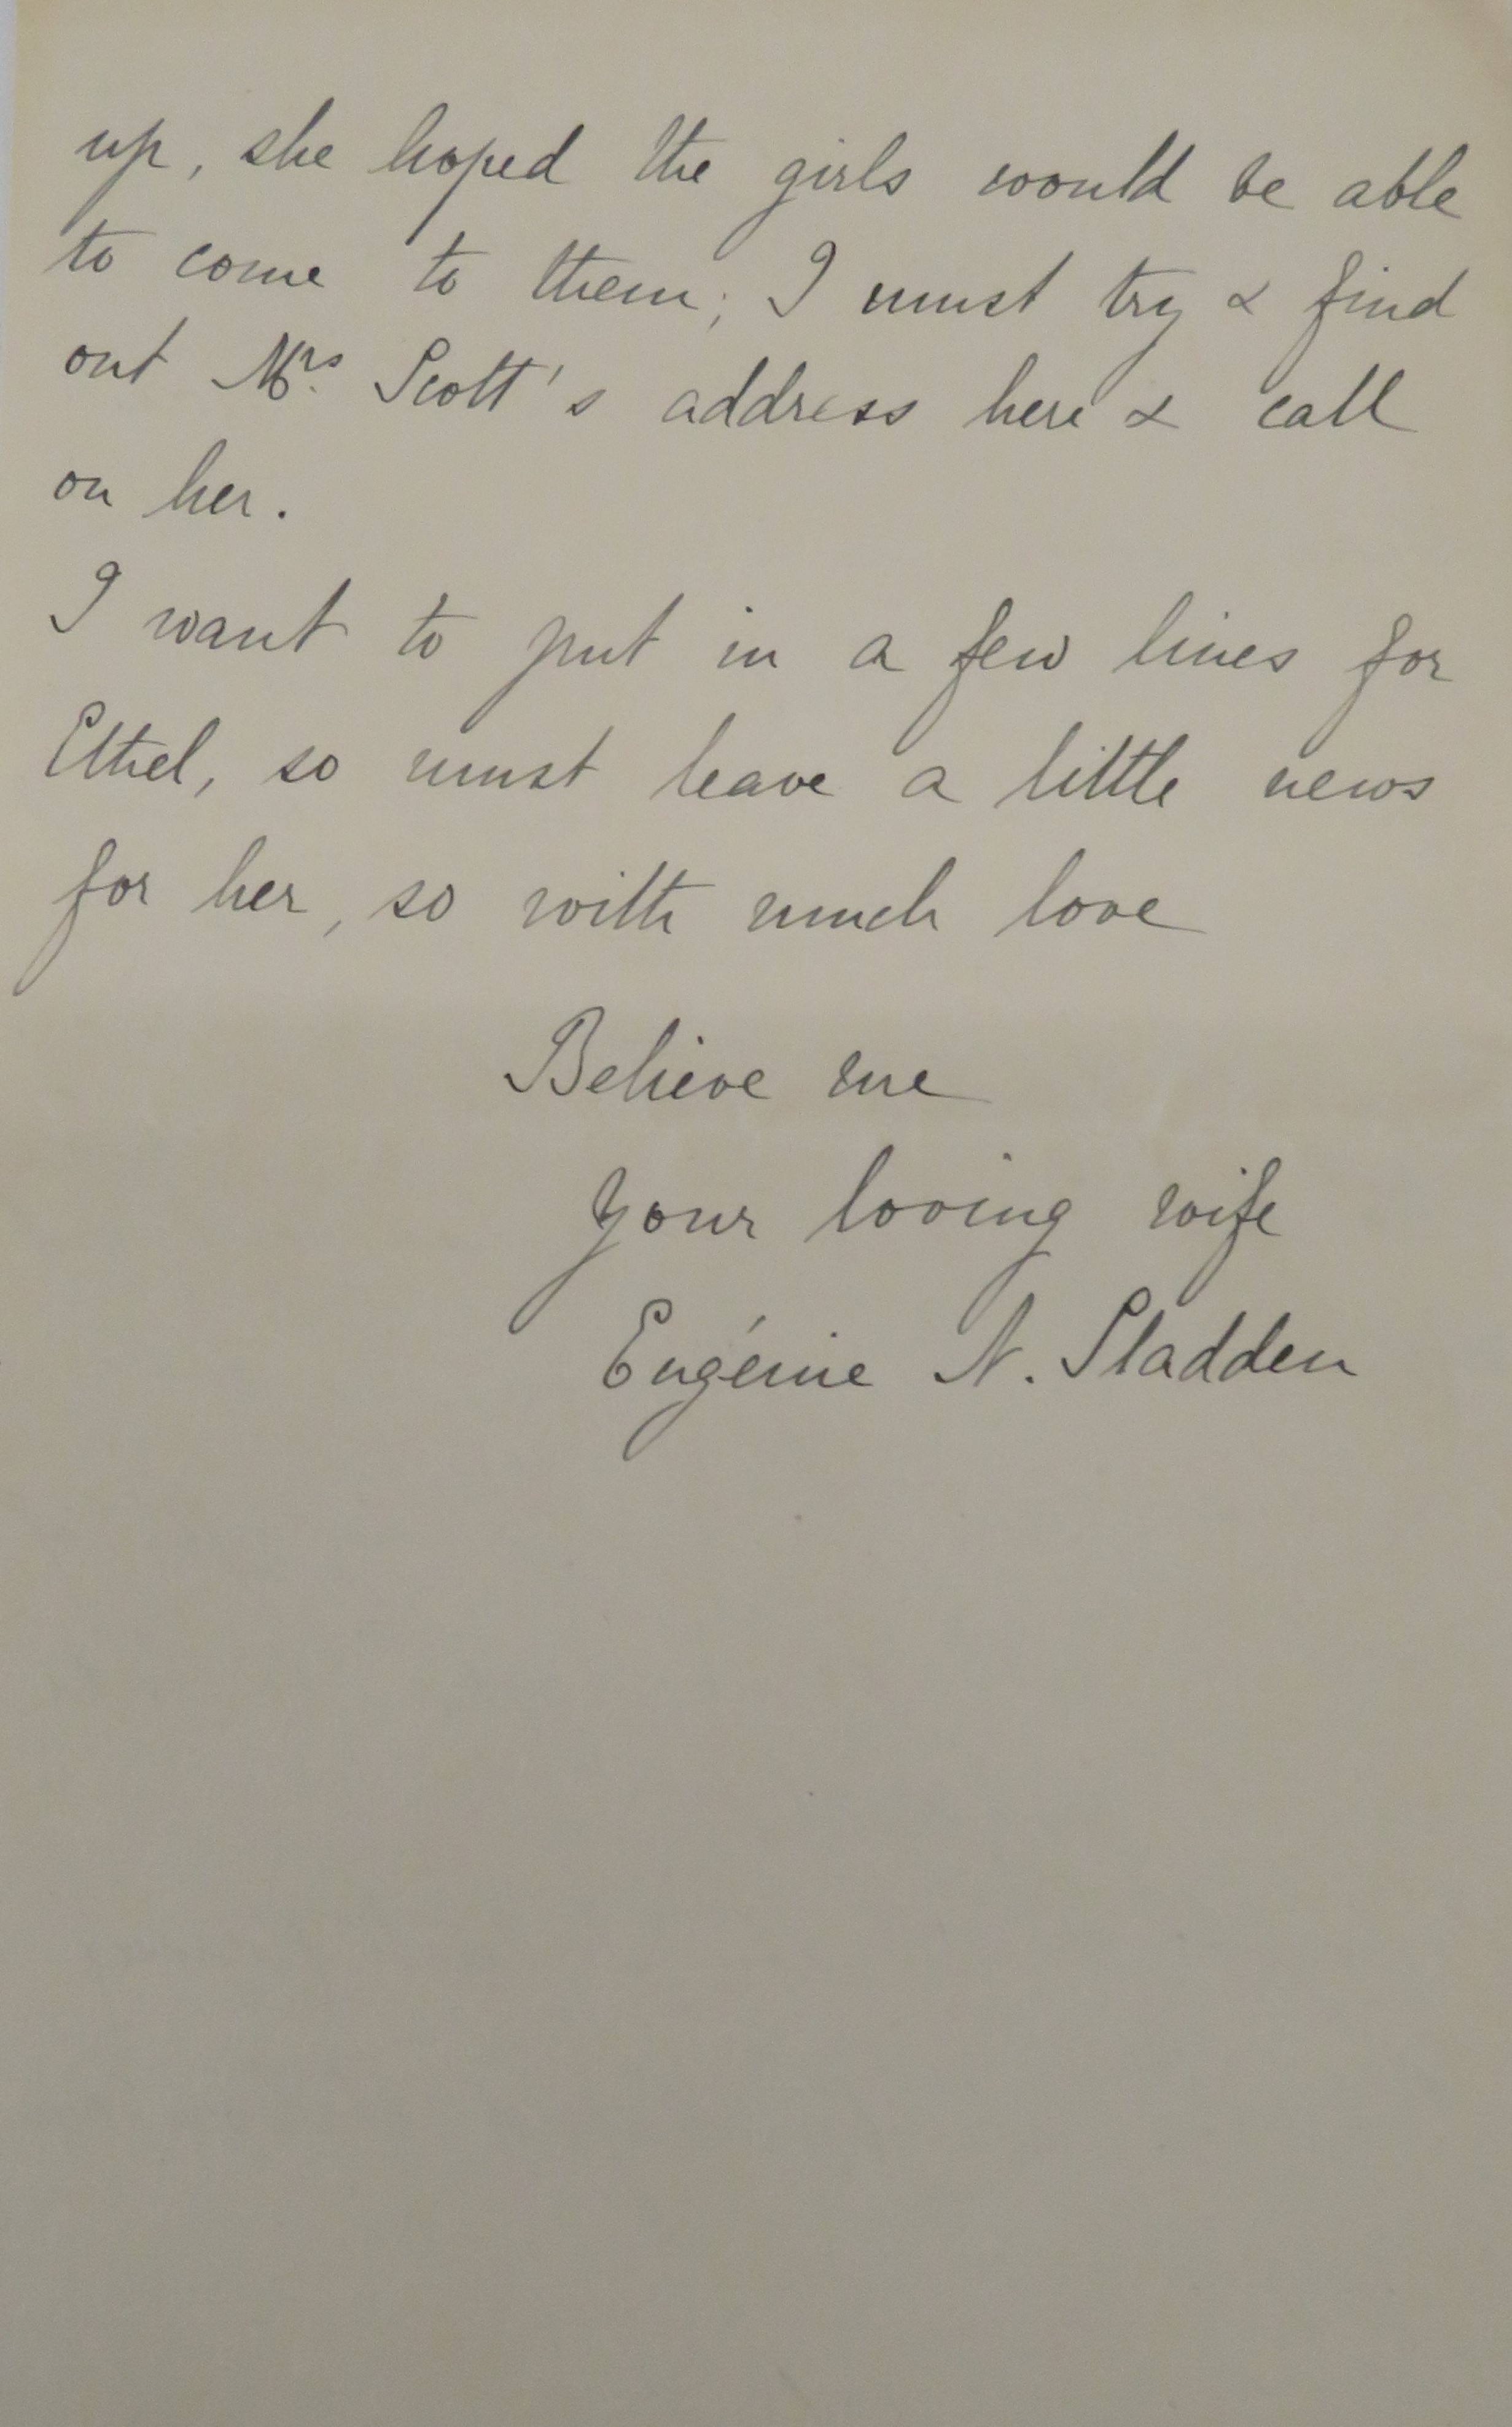 up, she hoped the girls would be able
to come to them; I must try & find
out Mrs. Scott's address here & call
on her.
I want to put in a few lines for
Ethel, so must leave a little news
for her, so with much love
Believe me
your loving wife
Eugénie N. Sladden